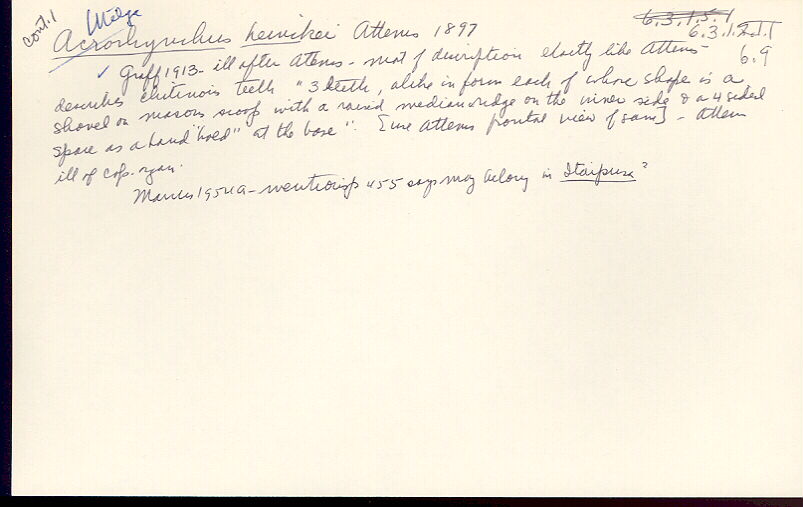 cont. 1
Midge
Acrorhynchus heinckei Attems 1897
6.3.1.5.1
6.3.1.2.1.1
6.9
✓ Graff 1913 - ill after Attems - most of discription exactly like Attems
describes chitinois teeth "3 teeth, alike in form each of whose shape is a
shovel or masons scoop with a raised median ridge on the inner side & a 4 sided
space as a hand hold" at the base". [use Attems frontal view of same] - Attems
ill of cop. organ.
Marcus 1954a - mentions p 455 says may belong in Itaipusa?